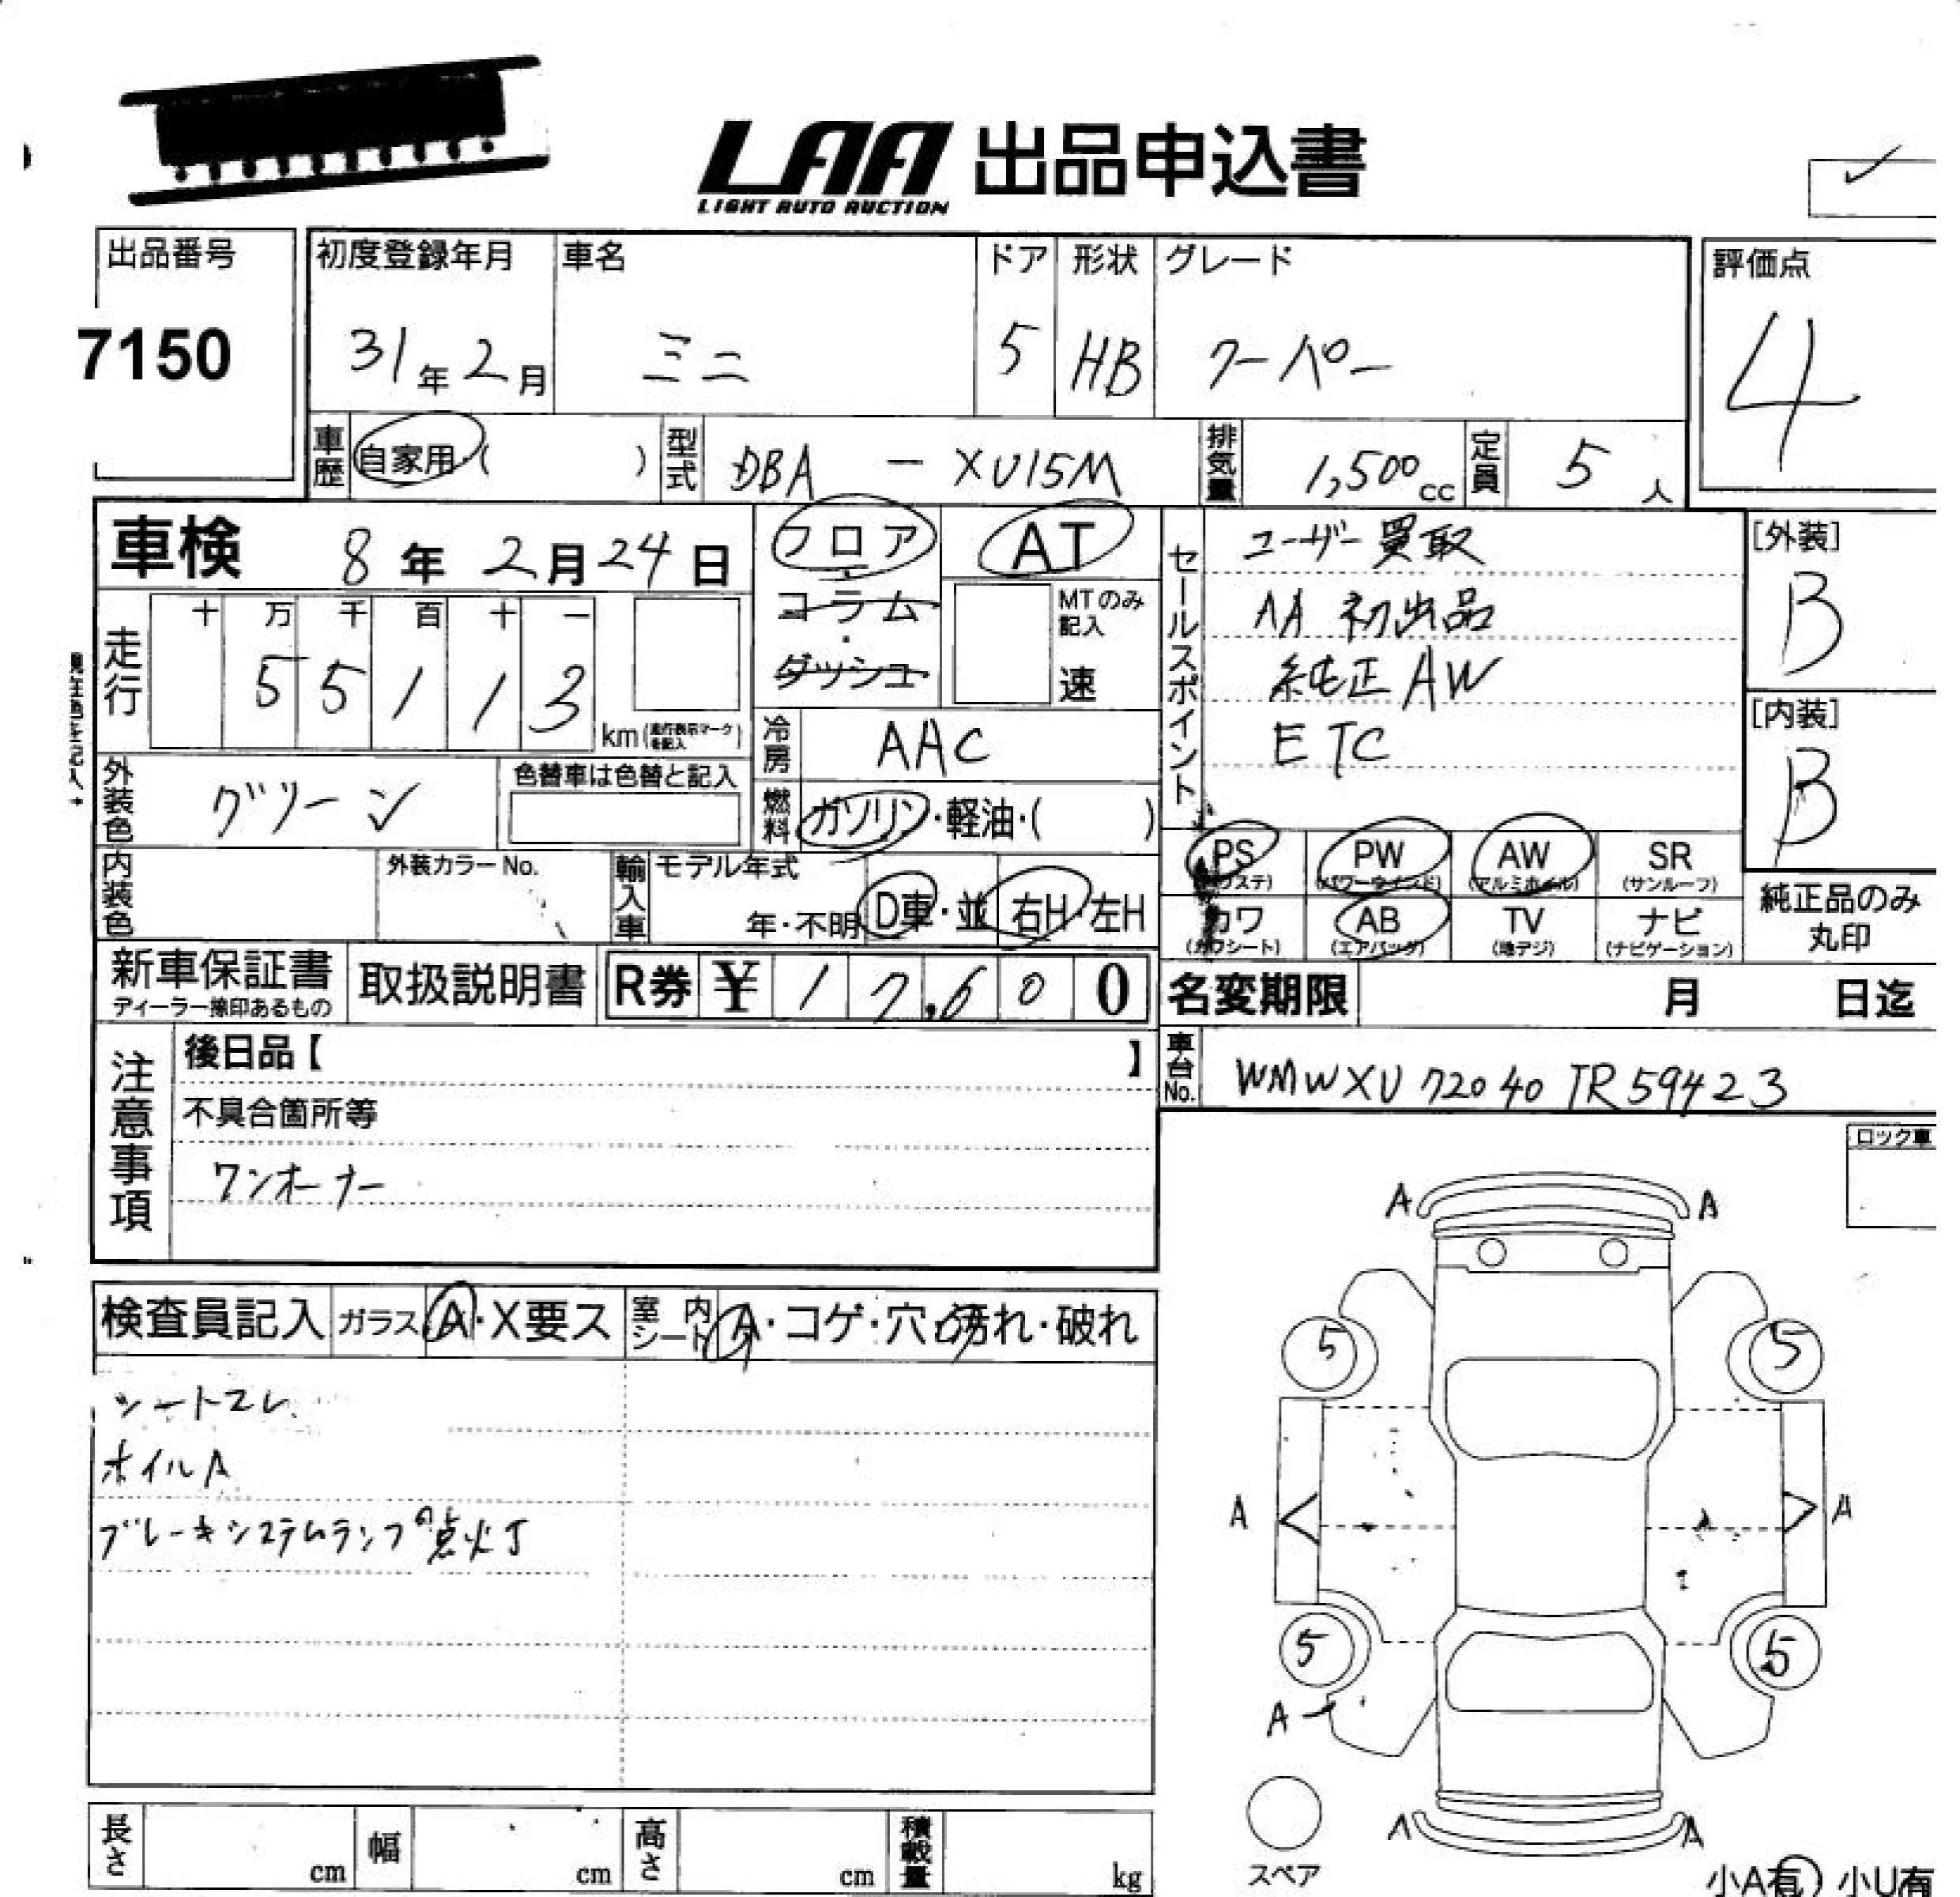 LAA 出品申込書
LIGHT AUTO AUCTION
出品番号
7150
初度登録年月 車名 ドア 形状 グレード
31年2月 ミニ 5 HB クーペー
評価点
4
車歴 自家用・( ) 型式 DBA - XU15M 排気量 1,500cc 定員 5人
車検 8年2月24日
フロア・コラム・ダッシュ
AT
MTのみ記入
速
走行 十 万 千 百 十 一
5 5 1 1 3 km(走行表示マークを記入)
冷房 AAC
外装色 グリーン 色替車は色替と記入
燃料 ガソリン・軽油・( )
内装色 外装カラーNo. 輸入車 モデル年式
年・不明 D車・並 右H・左H
セールスポイント
ユーザー買取
AA 初出品
純正AW
ETC
[外装]
B
[内装]
B
PS (パワステ) PW (パワーウインド) AW (アルミホイル) SR (サンルーフ)
カワ (カワシート) AB (エアバッグ) TV (地デジ) ナビ (ナビゲーション)
純正品のみ
丸印
新車保証書 取扱説明書 R券 ¥ 1 7,6 0 0
ディーラー捺印あるもの
名変期限 月 日迄
注意事項
後日品【 】
不具合箇所等
ワンオーナー
車台No. WMWXU72040TR59423
ロック車
検査員記入 ガラス A・X要ス 室内シート A・コゲ・穴・汚れ・破れ
シートスレ
ホイルA
ブレーキシステムランプの点灯
A A
5 5
A A
5 5
A
A A
スペア
小A有 小U有
長さ cm 幅 cm 高さ cm 積載量 kg